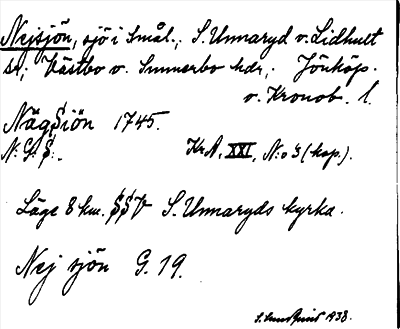 Nejsjön, sjö i Smål., S. Unnaryd o. Lidhult
sn; Västbo o. Sunnerbo hdr, Jönköp.
o. Kronob. l.
Nägsiön 1745.
N:G:S:. Kr A, XXI, N:o 3 (kop.).
Läge 8 km. SSV S. Unnaryds kyrka.
Nej sjön G. 19.
1938.